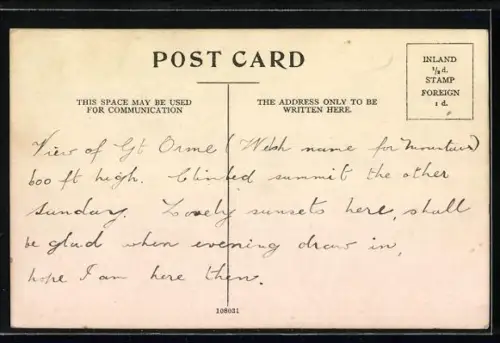 POST CARD
THIS SPACE MAY BE USED
FOR COMMUNICATION
THE ADDRESS ONLY TO BE
WRITTEN HERE.
INLAND
½ d.
STAMP
FOREIGN
1 d.
View of Gt Orme (Welsh name for mountain)
600 ft high. Climbed summit the other
Sunday. Lovely sunsets here, shall
be glad when evening draw in,
hope I am here then.
106031